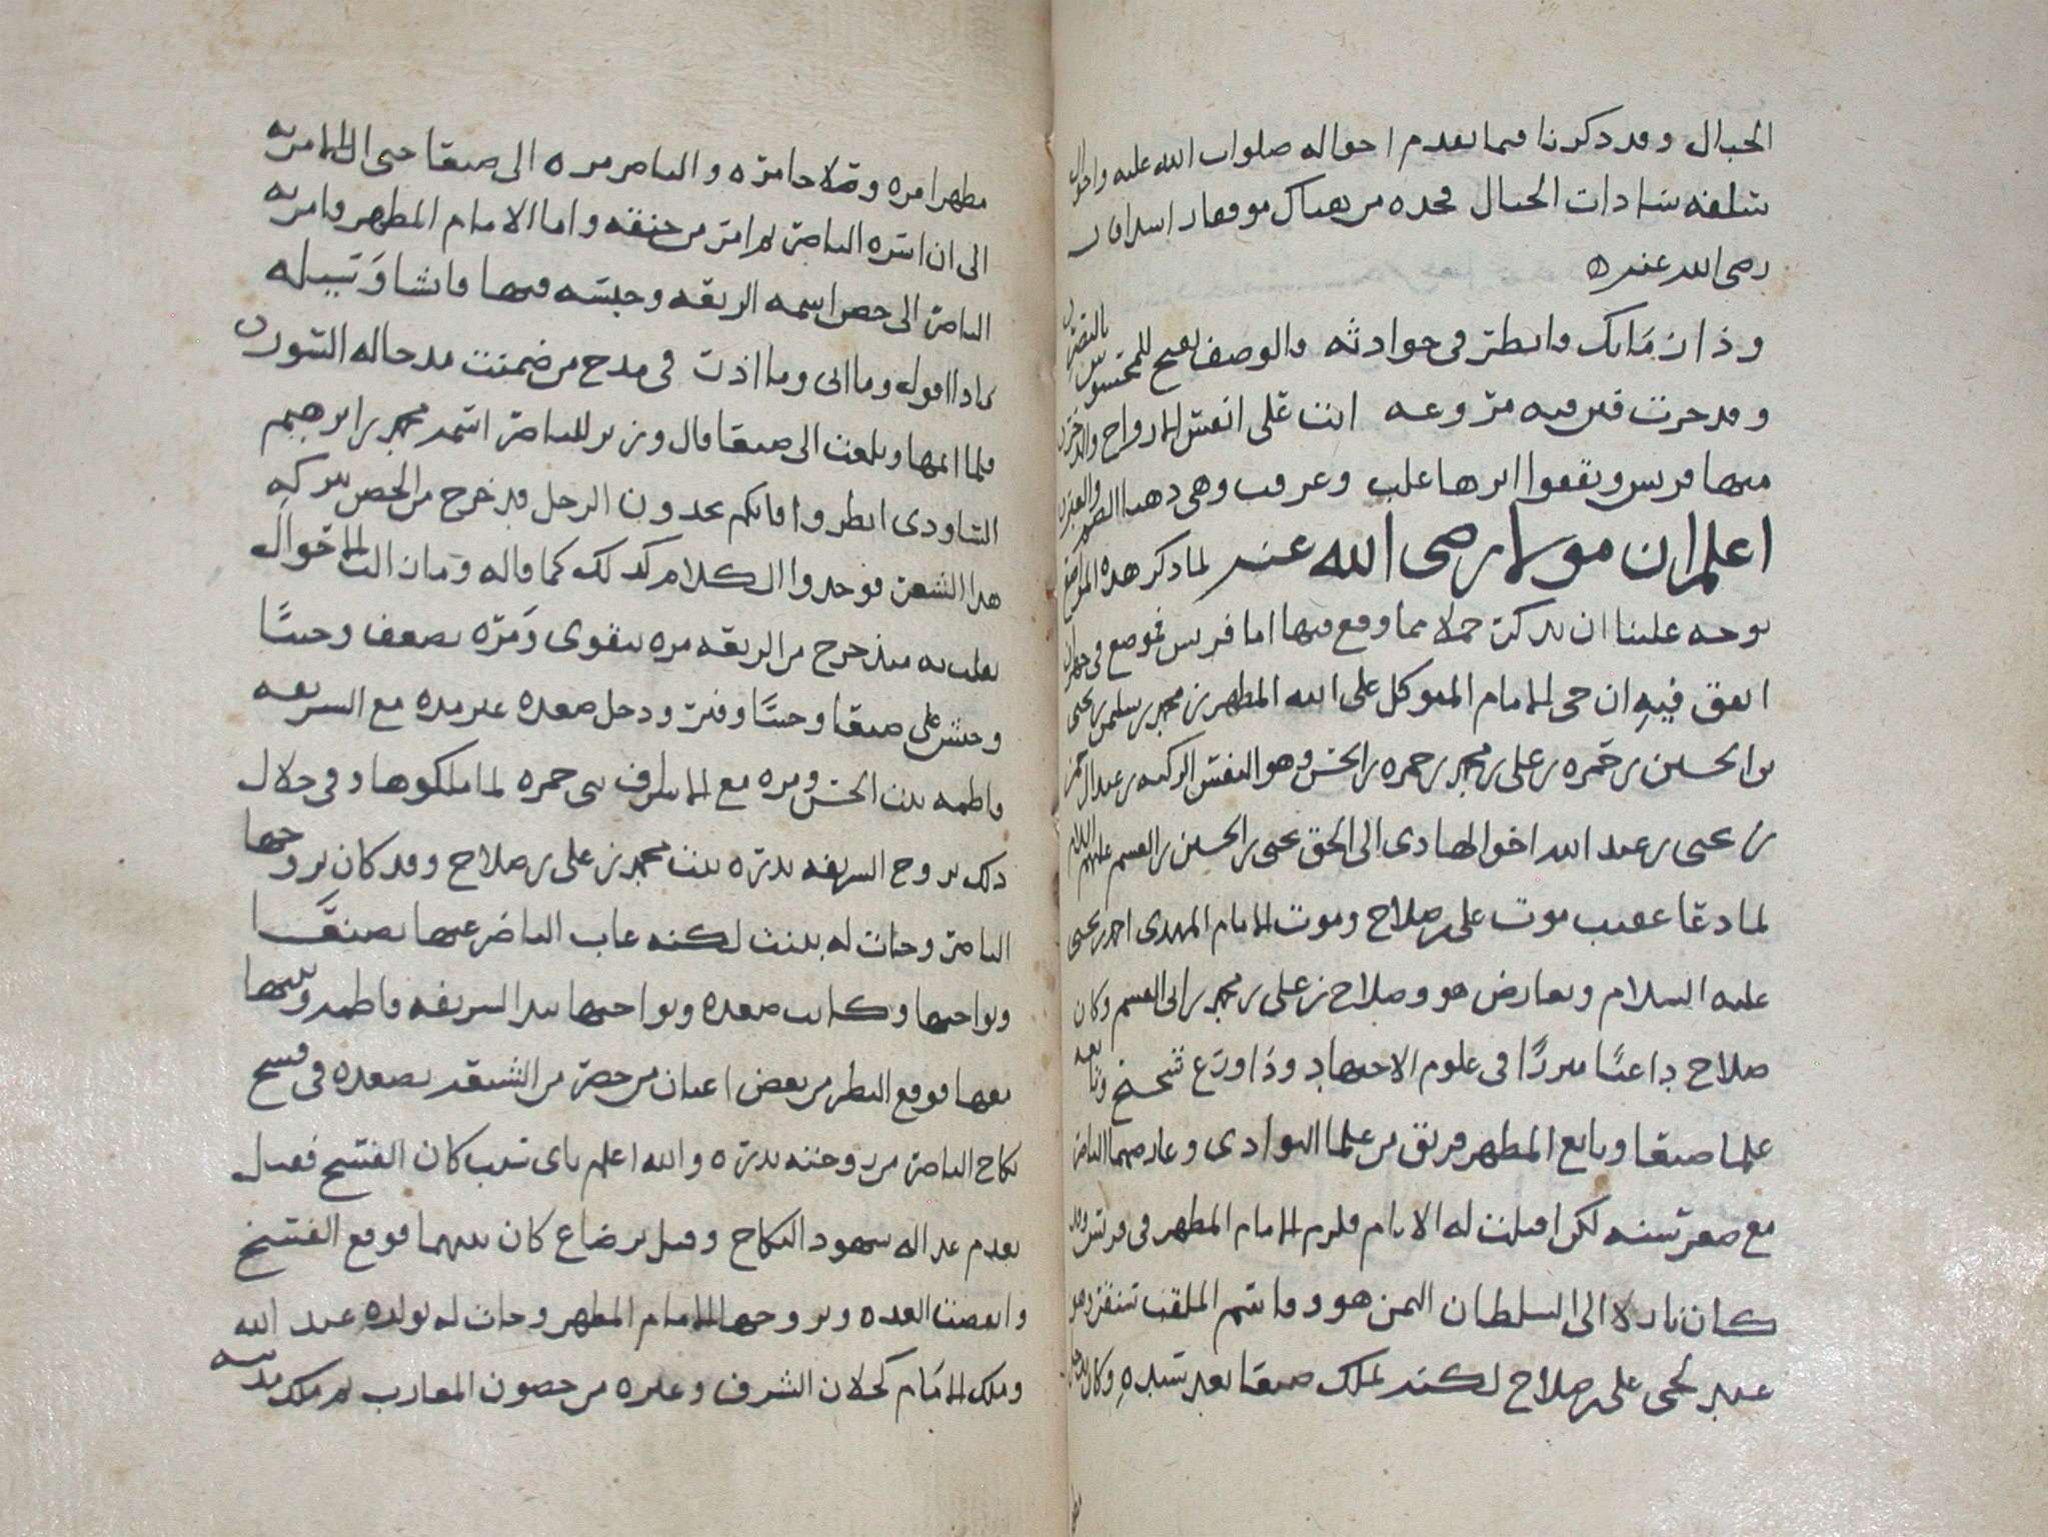 الجبال وقد ذكرنا فيما تقدم احواله صلوات الله عليه واحوال
سلفه سادات الجبال فخذه من هناك موفقا ان شاالله
رضى الله عنه
وذا زمانك فانظر في حوادثه والوصف يصح
وقد جرت فتن فيه مروعه اتت على انفس الارواح
منها قريس ويقفوا اثرها علب وعرقب وهي دهيا
اعلم ان مولانا رضى الله عنه لما ذكر هذه المواضع
توجه علينا ان نذكر جملا مما وقع فيها اما قريس فموضع في جهران
اتفق فيه ان حي الامام المتوكل على الله المطهر بن محمد بن سليمن بن يحيى
بن الحسين بن حمزه بن علي بن محمد بن حمزه بن الحسن وهو النفس الزكيه بن عبدالرحمن
بن يحيى بن عبد الله اخو الهادى الى الحق يحيى بن الحسين بن القسم عليهم السلام
لما دعا عقيب موت علي بن صلاح وموت الامام المهدى احمد بن يحيى
عليه السلام وتعارض هو وصلاح بن علي بن محمد بن ابي القسم وكان
صلاح داعيا مبرزا في علوم الاجتهاد وذا ورع شحيح وتابعه
علما صنعا وبايع المطهر فريق من علما البوادى وعارضهما الناصر
مع صغر سنه لكن اقبلت له الايام فلزم الامام المطهر في قريس وقد
كان نازلا الى السلطان اليمن هو وقاسم الملقب سنقر وهو
عبد لحي علي بن صلاح لكنه تملك صنعا بعد سيده وكان
مطهرا مره وصلاحا مره والناصر مره الى صنعا حتى ال الامر به
الى ان اسره الناصر ثم امر من خنقه واما الامام المطهر فامر به
الناصر الى حصن اسمه الربعه وحبسه فيها فانشا وسيله
ماذا اقول وما اتى وما اذر في مدح من ضمنت مدحا له السور
فلما اتمها وبلغت الى صنعا قال وزير للناصر اسمه محمد بن ابرهيم
الساودى انظروا فانكم تجدون الرجل قد خرج من الحصن ببركه
هذا الشعر فوجدوا الكلام كذلك كما قاله وما زالت الاحوال
تقلب به منذ خرج من الربعه مره يتقوى ومره يضعف وحينا
وحبس على صنعا وحينا وفتر ودخل صعده غير مره مع الشريفه
فاطمه بنت الحسن ومره مع الاشراف بني حمزه لما ملكوها وفي خلال
ذلك تزوج الشريفه بدره بنت محمد بن علي بن صلاح وقد كان تزوجها
الناصر وجات له ببنت لكنه غاب الناصر عنها بصنعا
ونواحيها وكانت صعده ونواحيها بيد الشريفه فاطمه وبنتها
معها فوقع النظر من بعض اعيان من حضر من الشيعه بصعده في فسخ
نكاح الناصر من زوجته بدره والله اعلم باى سبب كان الفسخ فقيل
بعدم عداله شهود النكاح وقيل برضاع كان بينهما فوقع الفسخ
وانقضت العده وتزوجها الامام المطهر وجات له بولده عبد الله
وملك الامام كحلان الشرف وغيره من حصون المغارب ثم ملك مدينه